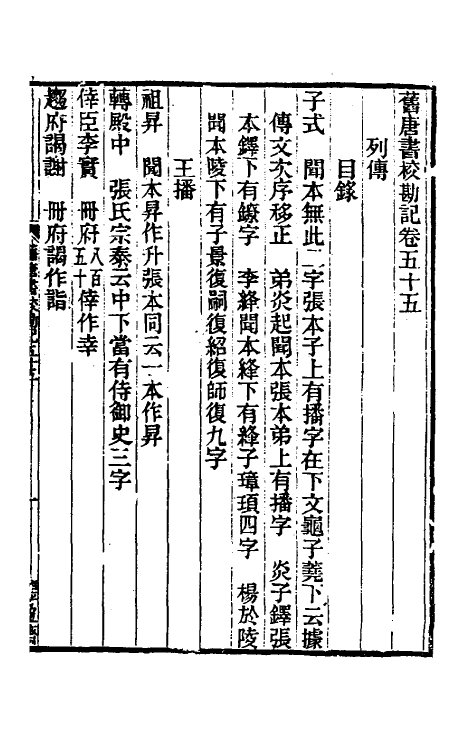 舊唐書校勘記卷五十五
列傳
目錄
子式　聞本無此二字張本子上有播字在下文龜子蕘下云據
傳文次序移正　弟炎起聞本張本弟上有播字　炎子鐸張
本鐸下有鐐字　李絳聞本絳下有絳子璋頊四字　楊於陵
聞本陵下有子景復嗣復紹復師復九字
王播
祖昇　聞本昇作升張本同云一本作昇
轉殿中　張氏宗泰云中下當有侍御史三字
倖臣李實　冊府八百五十倖作幸
趨府謁謝　冊府謁作詣